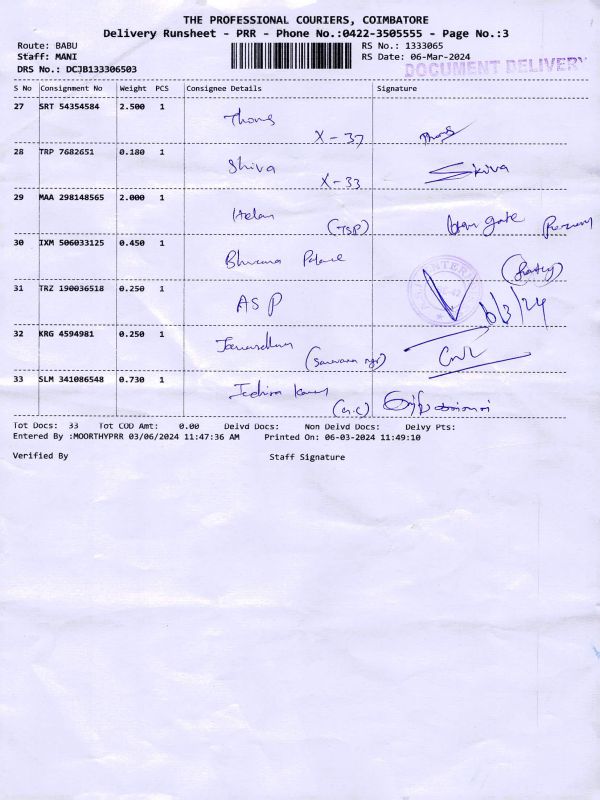 THE PROFESSIONAL COURIERS, COIMBATORE
Delivery Runsheet - PRR - Phone No.:0422-3505555 - Page No.:3
Route: BABU RS No.: 1333065
Staff: MANI RS Date: 06-Mar-2024
DRS No.: DCJB133306503 DOCUMENT DELIVERY
S No Consignment No Weight PCS Consignee Details Signature
27 SRT 54354584 2.500 1 Thomas
X - 37
28 TRP 7682651 0.180 1 Shiva Shiva
X - 33
29 MAA 298148565 2.000 1 Helan
(TSP)
30 IXM 506033125 0.450 1 Bhuvana Palace
31 TRZ 190036518 0.250 1 ASP 6/3/24
32 KRG 4594981 0.250 1
33 SLM 341086548 0.730 1
Tot Docs: 33 Tot COD Amt: 0.00 Delvd Docs: Non Delvd Docs: Delvy Pts:
Entered By :MOORTHYPRR 03/06/2024 11:47:36 AM Printed On: 06-03-2024 11:49:10
Verified By Staff Signature